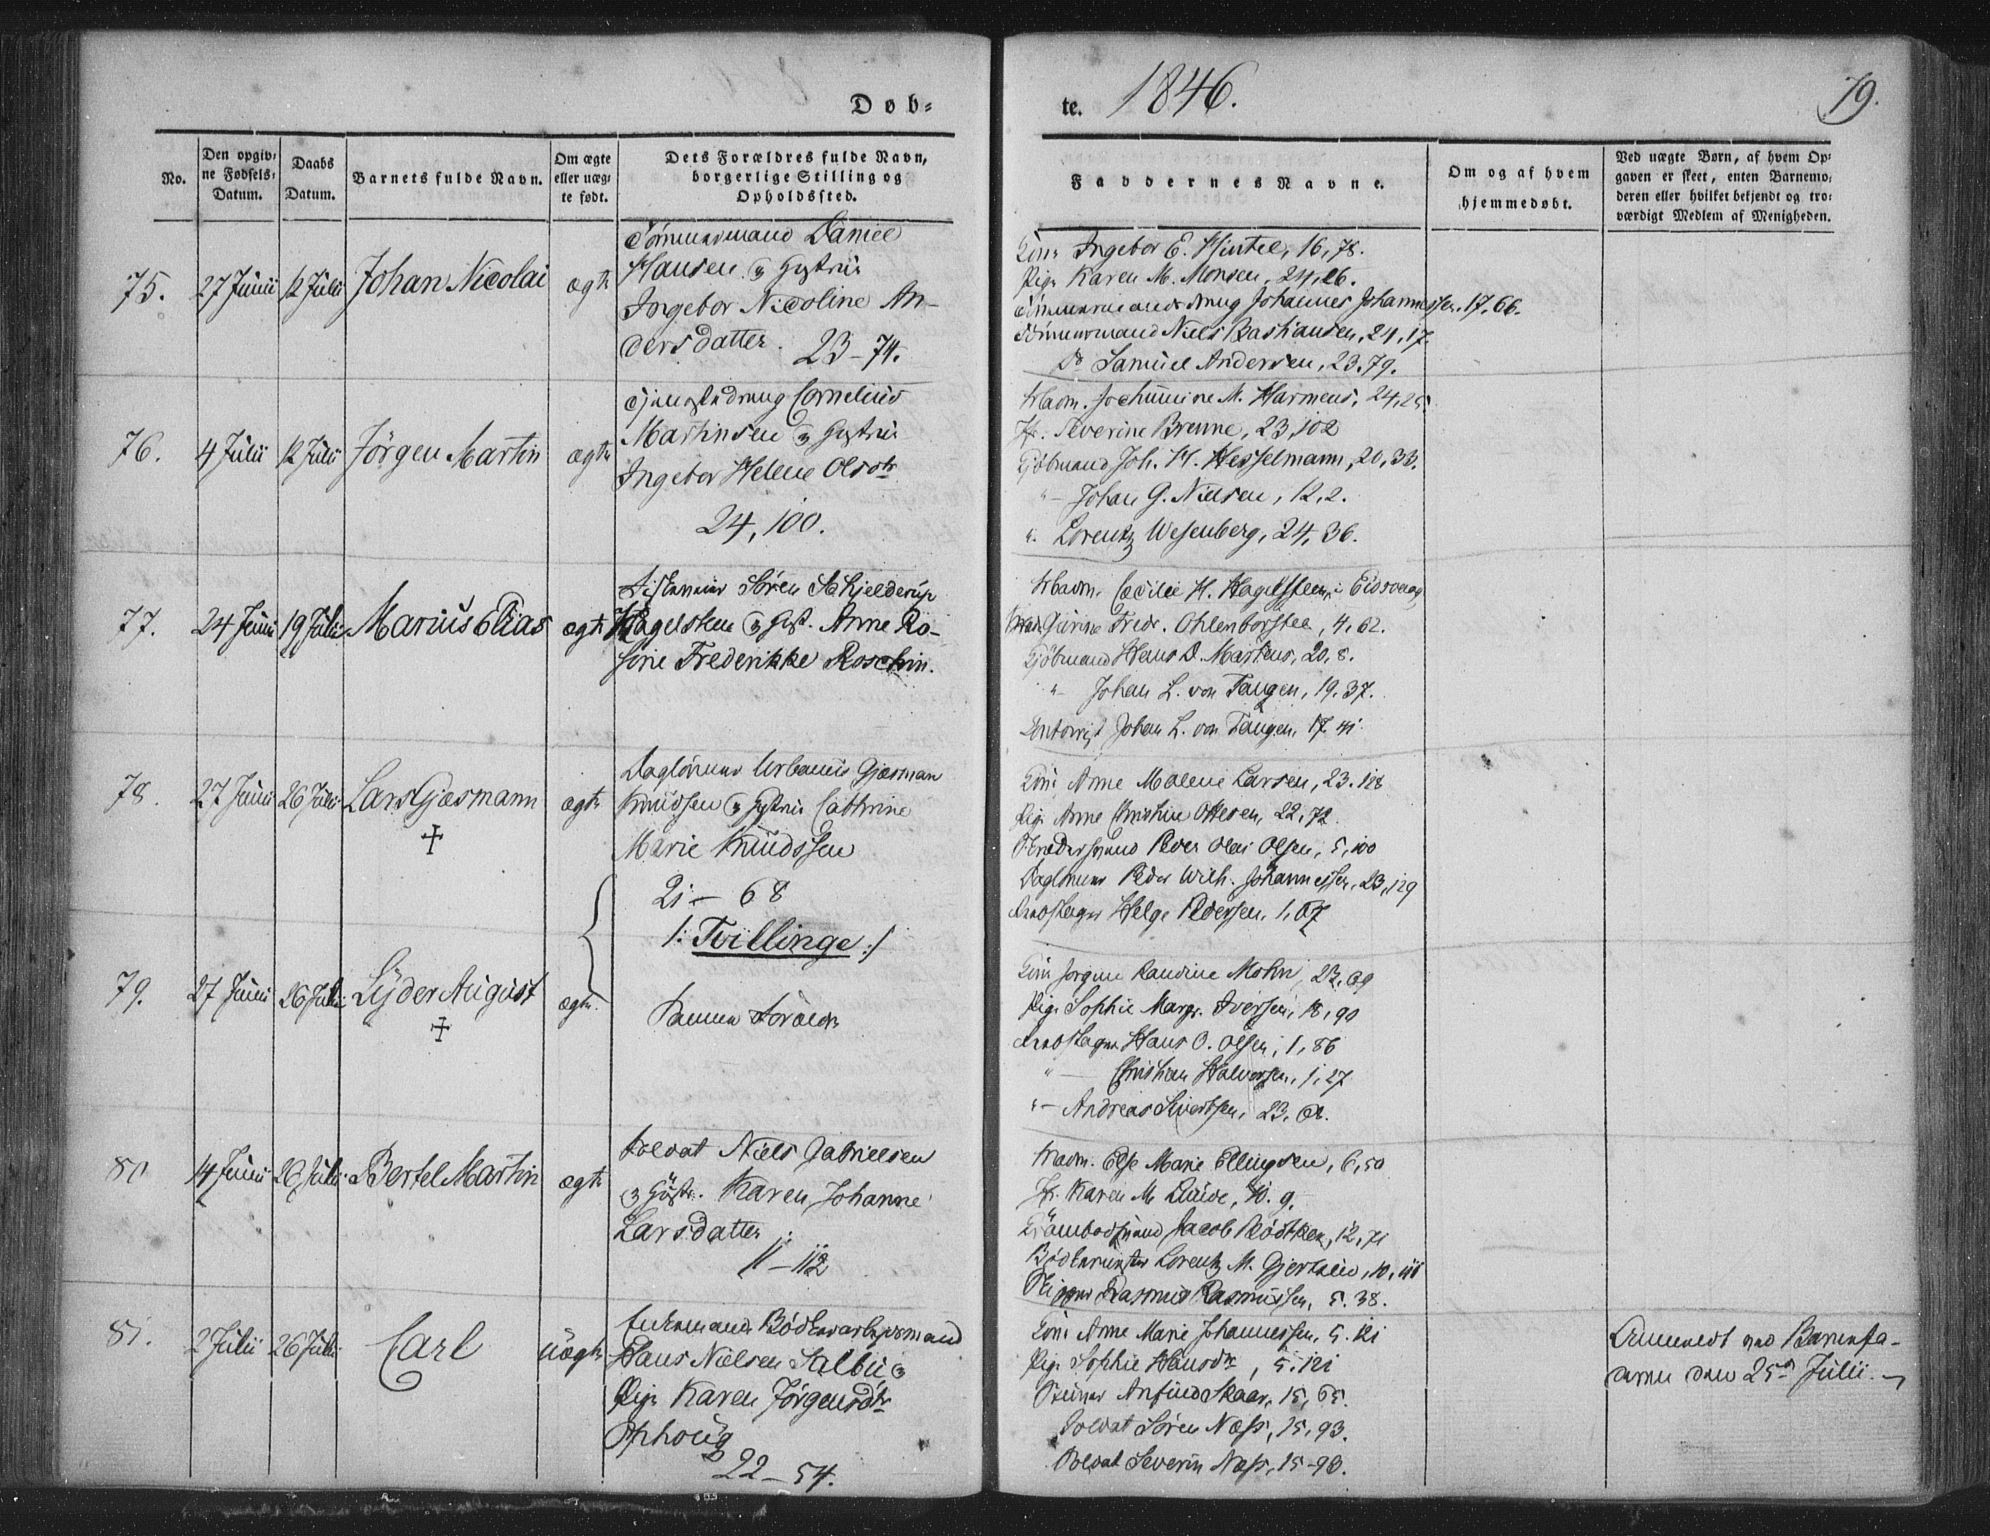 Døb=
te. 1846.
79.
No.
Den opgiv=
ne Fødsels=
Datum.
Daabs
Datum.
Barnets fulde Navn.
Om ægte
eller uæg=
te født.
Dets Forældres fulde Navn,
borgerlige Stilling og
Opholdssted.
Faddernes Navne.
Om og af hvem
hjemmedøbt.
Ved uægte Børn, af hvem Op=
gaven er skeet, enten Barnemo=
deren eller hvilket bekjendt og tro=
værdigt Medlem af Menigheden.
75.
27 Junii
12 Julii
Johan Nicolai
ægte
Tömmermand Daniel
Hansen og Hustrue
Ingebor Nicoline An-
dersdatter. 23-74.
Kone Ingebor E. Hintee, 16, 78.
Pige Karen M. Monsen, 24, 26.
Tömmermandsdreng Johannes Johannessen. 17. 66.
Tömmermand Niels Bastiansen, 24, 17.
Do Samuel Andersen, 23. 79.
76.
4 Julii
12 Julii
Jörgen Martin
ægte
Tjenestedreng Cornelius
Martinsen og Hustrue
Ingebor Helene Olsdtr
24, 100.
Mad. Jochumine M. Harmens, 24, 25.
Jfr. Severine Brenne, 23, 102
Kjöbmand Joh. H. Hesselmann, 20, 33.
"- Johan G. Nielsen, 12, 2.
". Lorentz Wesenberg, 24, 36.
77.
24 Junii
19 Julii
Marius Elias
ægte
Sören Schjelderup
Hagelsteen og Hust. Anne Ro-
sine Frederikke Roschin.
Mad. Cæcilie H. Hagelsteen, Eidsvaag
Mad. Gurine Fredr. Ohlenborstel, 4, 62.
Kjöbmand Hans D. Martens, 20, 8.
"- Johan L. von Tangen, 19. 37.
Contorist Johan L. von Tangen, 17. 41.
78.
27 Junii
26 Julii
Lars Gjæsmann
+
ægte
Daglönner Urbanus Gjæsman
Knudsen og Hustrue Cathrine
Marie Knudssen
21- 68
/: Tvillinge :/
Kone Anne Malene Larsen, 23. 128
Pige Anne Christine Ottesen, 22, 72.
Skredersvend Peder Olai Olsen, 5, 100
Daglönner Peder Wilh. Johannessen, 23, 129
Helge Pedersen, 1, 67
79.
27 Junii
26 Julii
Lyder August
+
ægte.
Samme Foræld.
Kone Jorgine Randine Mohn, 22, 69
Pige Sophie Margr. Iversen, 18, 90
Hans O. Olsen, 1, 86
"- Christian Halvorsen, 1, 27
"- Andreas Sivertsen, 23, 62.
80
14 Junii
26 Julii
Bertel Martin
ægte
Soldat Niels Gabrielsen
og Hustr. Karen Johanne
Larsdatter.
11-112
Mad. Else Marie Ellingsen, 6, 50
Jfr. Karen M. Linde, 10. 9.
Krambodsvend Jacob Rödtken, 12, 71
Bödkermester Lorentz M. Gjertsen, 10, 118
Rasmus Rasmussen, 5. 38.
81.
2 Julii
26 Julii
Carl
uægte
Enkemand Bödkerarbeidsmand
Hans Nielsen Salbu og
Pige Karen Jörgensdtr
Ophoug
22-54.
Kone Anne Marie Johannessen, 5. 121
Pige Sophie Hansdtr, 5. 121
Anfind Skaar, 15, 65.
Soldat Sören Næss, 15, 93.
Soldat Severin Næss, 15-93.
Anmeldt ved Barnefa-
deren den 25de Julii.